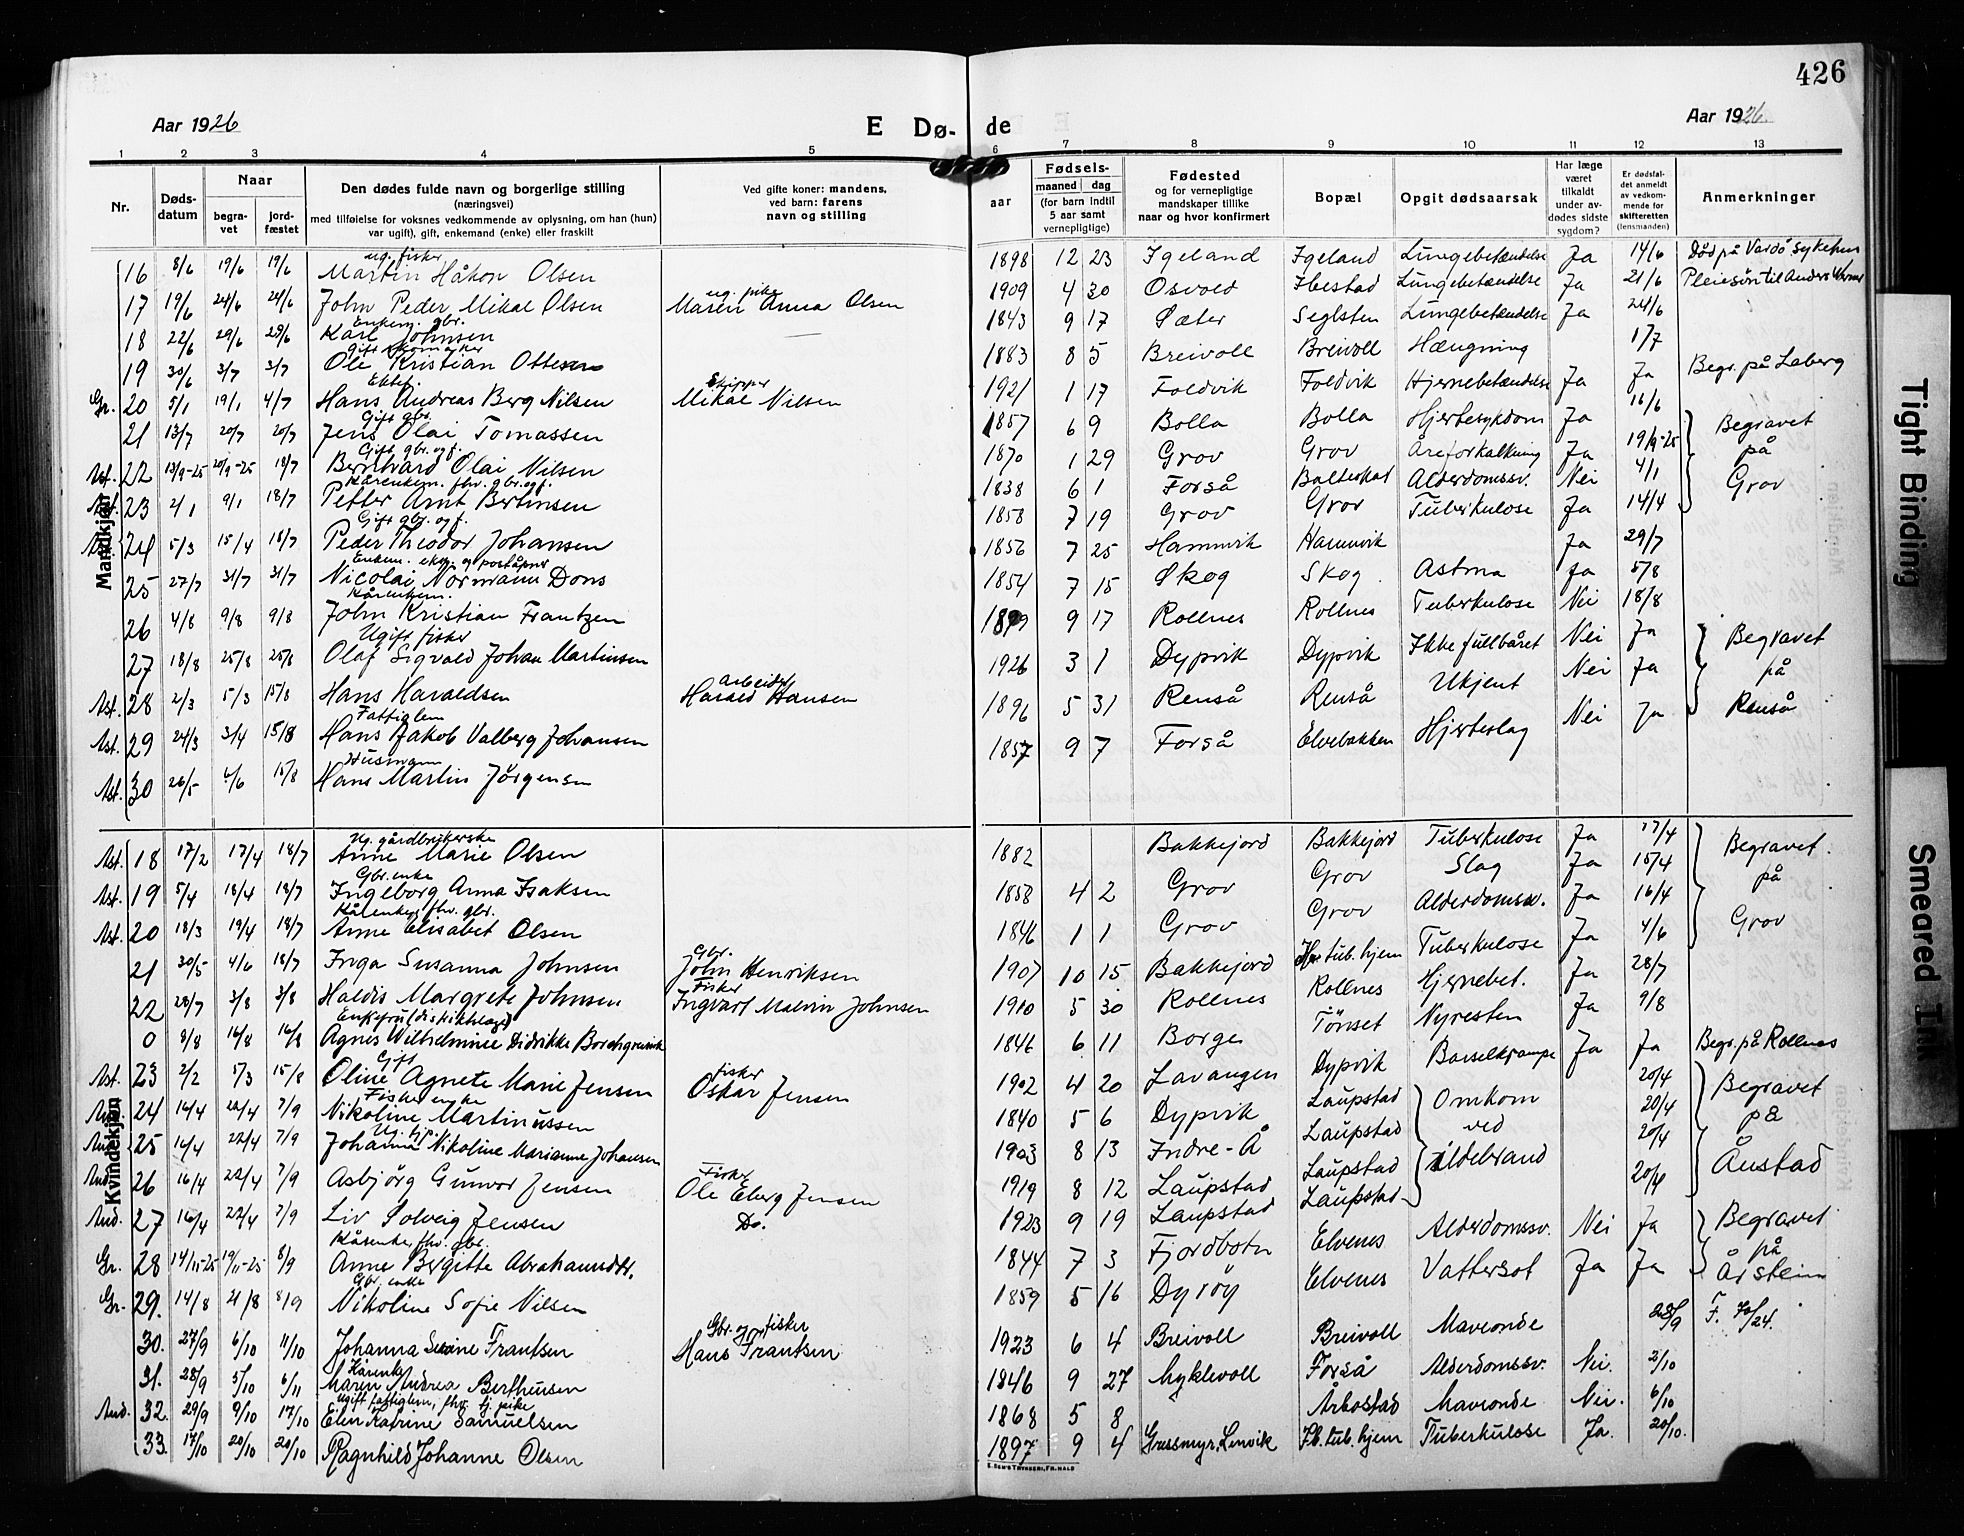 426
Aar 1926
E Dø- de
Aar 1926
1 2 3 4 5 6 7 8 9 10 11 12 13
Nr.
Dødsdatum
Naar
begravet
jordfæstet
Den dødes fulde navn og borgerlige stilling
(næringsvei)
med tilføielse for voksnes vedkommende av oplysning, om han (hun)
var ugift), gift, enkemand (enke) eller fraskilt
Ved gifte koner: mandens,
ved barn: farens
navn og stilling
Fødsels-
aar
maaned dag
(for barn indtil
5 aar samt
vernepligtige)
Fødested
og for vernepligtige
mandskaper tillike
naar og hvor konfirmert
Bopæl
Opgit dødsaarsak
Har læge
været
tilkaldt
under av-
dødes sidste
sygdom?
Er dødsfal-
det anmeldt
av vedkom-
mende for
skifteretten
(lensmanden)
Anmerkninger
Mandkjøn
16 8/6 19/6 19/6 ug. fisker Martin Håkon Olsen 1898 12 23 Igeland Igeland Lungebetændelse Ja 14/6 Død på Vardø sykehus
17 19/6 24/6 24/6 John Peder Mikal Olsen ug. pike Maren Anna Olsen 1909 4 30 Osvold Ibestad Lungebetændelse Ja 21/6 Pleiesøn til Anders
18 22/6 29/6 29/6 Enkem. gbr. Karl Johnsen 1843 9 17 Sæter Seglsten Lungebetændelse Ja 24/6
19 30/6 3/7 3/7 Gift skomaker Ole Kristian Ottesen 1883 8 5 Breivoll Breivoll Hængning 1/7
Gr. 20 5/1 19/1 4/7 Ektef. Hans Andreas Berg Nilsen Skipper Mikal Nilsen 1921 1 17 Foldvik Foldvik Hjernebetændelse Ja Ja Begr. på Laberg
21 13/7 20/7 20/7 Gift gbr. Jens Olai Tomassen 1857 6 9 Bolla Bolla Hjertesykdom Ja 16/6
Ast. 22 13/9-25 20/9-25 18/7 Gift gbr. og f. Bernhard Olai Nilsen 1870 1 29 Grov Grov Åreforkalkning Ja 19/9-25 Begravet
Ast. 23 2/1 9/1 18/7 Kårenkem. fhv. gbr. og f. Petter Arnt Bertinsen 1838 6 1 Forså Balteskar Alderdomssv. Nei 4/1 på
Ast. 24 5/3 15/4 18/7 Gift gbr. og f. Peder Theodor Johansen 1858 7 19 Grov Grov Tuberkulose Ja 14/4 Grov
25 27/7 31/7 31/7 Enkem. eksp. og poståpner Nicolai Normann Dons 1856 7 25 Hamnvik Hamnvik Ja 29/7
26 4/8 9/8 9/8 Kårenkem. John Kristian Frantzen 1854 7 15 Skog Skog Astma Ja 5/8
27 18/8 25/8 25/8 Ugift fisker Olaf Sigvald Johan Martinsen 1899 9 17 Rollnes Rollnes Tuberkulose Nei 18/8
Ast. 28 2/3 5/3 15/8 Hans Haraldsen arbeider Harald Hansen 1926 3 1 Dypvik Dypvik Ikke fullbåret Nei Ja Begravet
Ast. 29 24/3 3/4 15/8 Fattiglem Hans Jakob Valberg Johansen 1896 5 31 Renså Renså Ukjent Nei Ja på
Ast. 30 26/5 4/6 15/8 Husmann Hans Martin Jörgensen 1857 9 7 Forså Elvebakken Hjerteslag Nei Ja Renså
Kvindekjøn
Ast. 18 17/2 17/4 18/7 Ug. gårdbrukerske Anne Marie Olsen 1882 Bakkejord Bakkejord Tuberkulose Ja 17/4 Begravet
Ast. 19 5/4 18/4 18/7 Gbr. enke Ingeborg Anna Isaksen 1858 4 2 Grov Grov Slag Ja 15/4 på
Ast. 20 18/3 19/4 18/7 Kårenke fhv. gbr. Anne Elisabet Olsen 1846 1 1 Grov Grov Alderdomssv. Ja 16/4 Grov
21 30/5 4/6 18/7 Inga Susanna Johnsen Gbr. John Henriksen 1907 10 15 Bakkejord tub. hjem Tuberkulose Ja 4/6
22 28/7 3/8 3/8 Haldis Margrete Johnsen Fisker Ingvart Malvin Johnsen 1910 5 30 Rollnes Rollnes Hjernebet. Ja 28/7
0 8/8 16/8 16/8 Enkefru (distriktslæge) Agnes Wilhelmine Didrikke Borchgrevink 1846 6 11 Borge Tönset Nyresten Ja 9/8
Ast. 23 2/2 5/3 15/8 Gift Oline Agnete Marie Jensen fisker Oskar Jensen 1902 4 20 Lavangen Dypvik Barselkrampe Ja Ja Begr. på Rollnes
And. 24 16/4 22/4 7/9 Fisker enke Nikoline Martinussen 1840 5 6 Dypvik Laupstad Omkom 20/4 Begravet
And. 25 16/4 22/4 7/9 Ug. tj.p. Johanna Nikoline Marianne Johansen 1903 8 13 Indre-Å Laupstad ved 20/4 på
And. 26 16/4 22/4 7/9 Asbjörg Gunvor Jensen Fisker Ole Eberg Jensen 1919 8 12 Laupstad Laupstad ildebrand 20/4 Ånstad
And. 27 16/4 22/4 7/9 Liv Solveig Jensen Do. 1923 9 19 Laupstad Laupstad 20/4
Gr. 28 14/11-25 19/11-25 8/9 Kårenke, fhv. gbr. Anne Bergitte Abrahamsdtr. 1844 7 3 Fjordbotn Elvenes Alderdomssv. Nei Ja Begravet
Gr. 29. 14/8 21/8 8/9 Gbr. enke Nikoline Sofie Nilsen 1859 5 16 Dyröy Elvenes Vattersot Ja Ja på Årstein
30. 27/9 6/10 11/10 Johanna Frantsen Gbr. og fisker Hans Frantsen 1923 6 4 Breivoll Breivoll Maveonde 28/9 F. /24.
31. 28/9 5/10 6/11 Kårenke Maren Andrea Berthinsen 1846 9 27 Myklevoll Forså Alderdomssv. Nei. 2/10
And. 32. 29/9 9/10 17/10 Ugift fattiglem, fhv. tj. pike Elen Katrine Samuelsen 1868 5 8 Årbostad Maveonde Nei. 6/10
33. 17/10 20/10 20/10 Ragnhild Johanne Olsen 1897 9 4 Grassmyr, Lenvik tub. hjem Tuberkulose Ja. 20/10.
E. SEM'S TRYKKERI, FR.HALD
Tight Binding
Smeared Ink